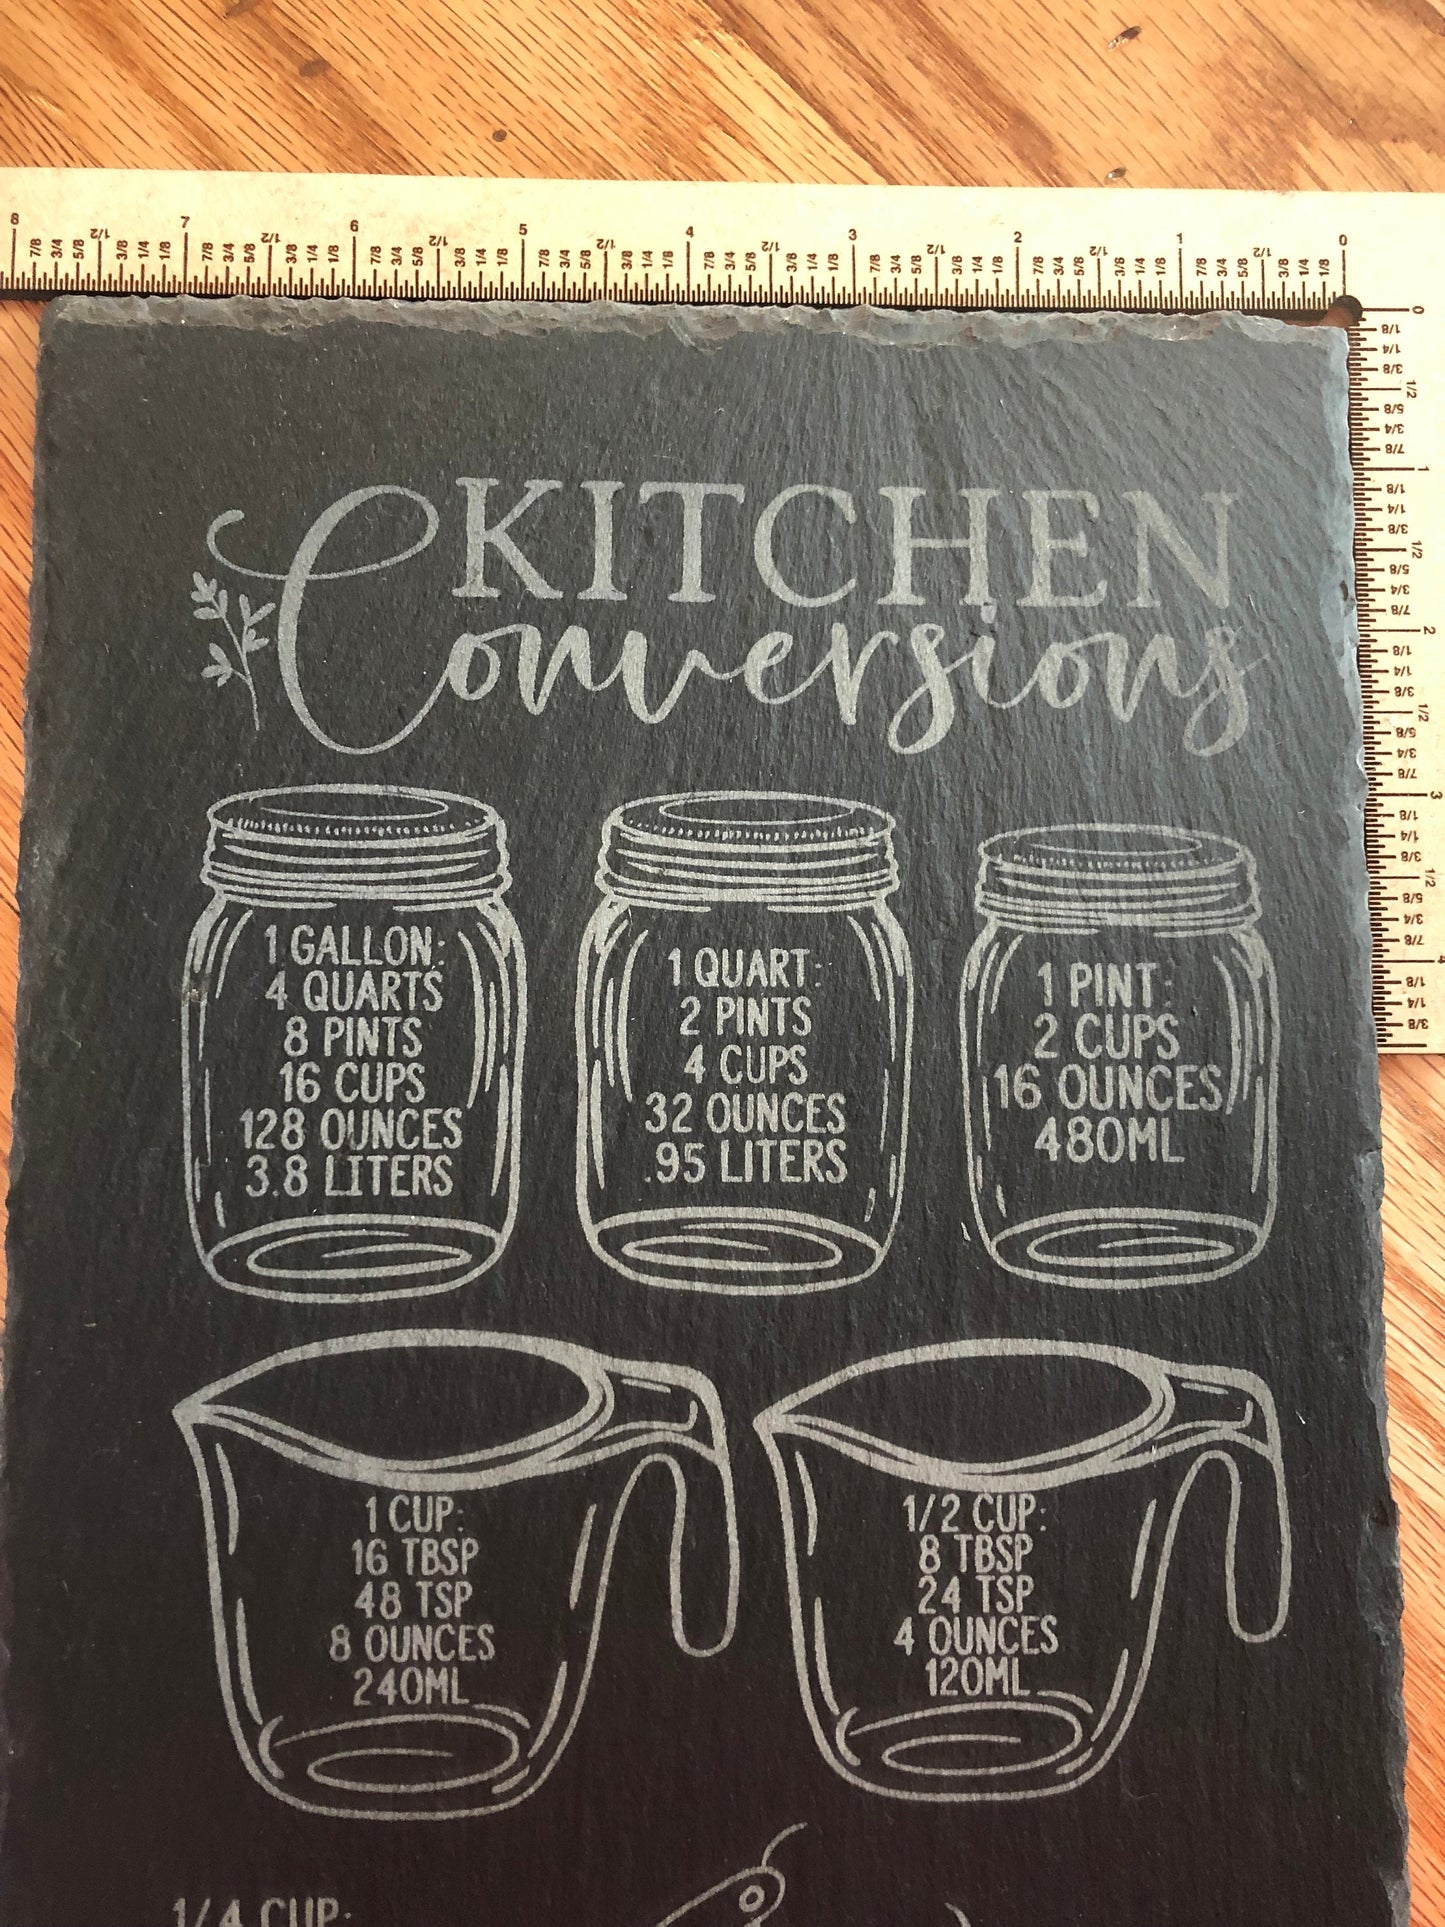 8 7/8 3/4 5/8 1/2 3/8 1/4 1/8 7 7/8 3/4 5/8 1/2 3/8 1/4 1/8 6 7/8 3/4 5/8 1/2 3/8 1/4 1/8 5 7/8 3/4 5/8 1/2 3/8 1/4 1/8 4 7/8 3/4 5/8 1/2 3/8 1/4 1/8 3 7/8 3/4 5/8 1/2 3/8 1/4 1/8 2 7/8 3/4 5/8 1/2 3/8 1/4 1/8 1 7/8 3/4 5/8 1/2 3/8 1/4 1/8 0
0
1/8
1/4
3/8
1/2
5/8
3/4
7/8
1
1/8
1/4
3/8
1/2
5/8
3/4
7/8
2
1/8
1/4
3/8
1/2
5/8
3/4
7/8
3
1/8
1/4
3/8
1/2
5/8
3/4
7/8
4
1/8
1/4
3/8
KITCHEN
Conversions
1 GALLON:
4 QUARTS
8 PINTS
16 CUPS
128 OUNCES
3.8 LITERS
1 QUART:
2 PINTS
4 CUPS
32 OUNCES
.95 LITERS
1 PINT:
2 CUPS
16 OUNCES
480ML
1 CUP:
16 TBSP
48 TSP
8 OUNCES
240ML
1/2 CUP:
8 TBSP
24 TSP
4 OUNCES
120ML
1/4 CUP: